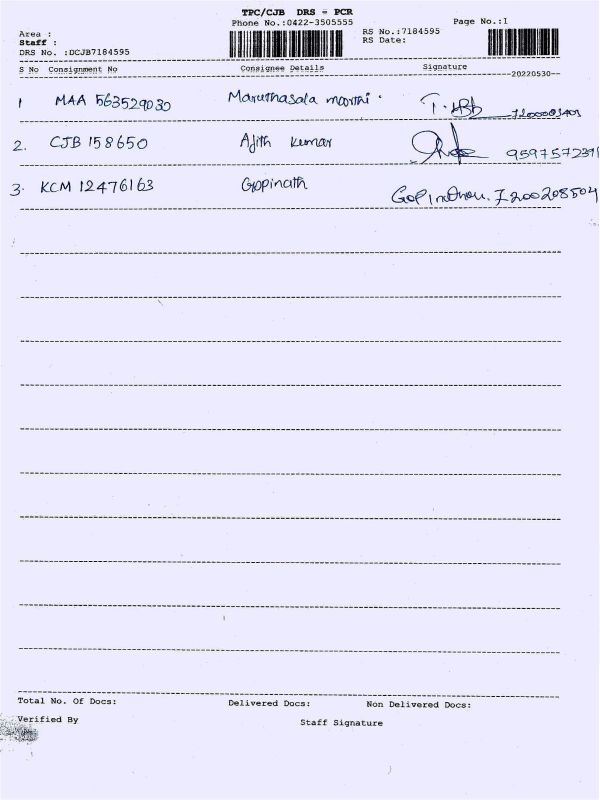 TPC/CJB DRS - PCR
Phone No.:0422-3505555
Page No.:1
Area :
RS No.:7184595
Staff :
RS Date:
DRS No. :DCJB7184595
S No Consignment No Consignee Details Signature
--20220530--
1 MAA 563529030 Maruthasala moorthi.
2. CJB 158650 Ajith kumar 959757239
3. KCM 12476163 Gopinath 7200208504
Total No. Of Docs: Delivered Docs: Non Delivered Docs:
Verified By Staff Signature